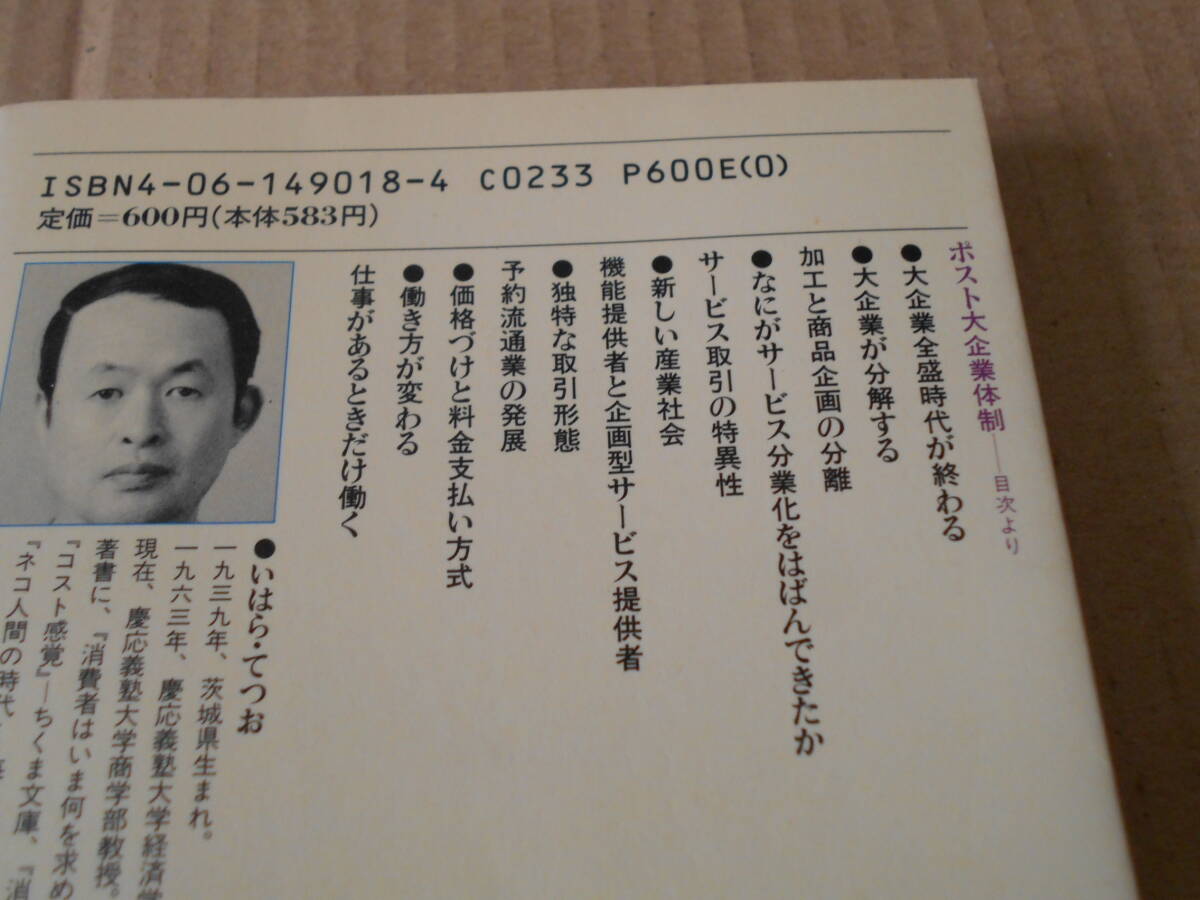 ISBN4-06-149018-4 C0233 P600E(0)
定価=600円(本体583円)
ポスト大企業体制——目次より
●大企業全盛時代が終わる
●大企業が分解する
加工と商品企画の分離
●なにがサービス分業化をはばんできたか
サービス取引の特異性
●新しい産業社会
機能提供者と企画型サービス提供者
●独特な取引形態
予約流通業の発展
●価格づけと料金支払い方式
●働き方が変わる
仕事があるときだけ働く
●いはら・てつお
一九三九年、茨城県生まれ。
一九六三年、慶応義塾大学経済学
現在、慶応義塾大学商学部教授。
著書に、『消費者はいま何を求め
『コスト感覚』—ちくま文庫、『消
『ネコ人間の時代